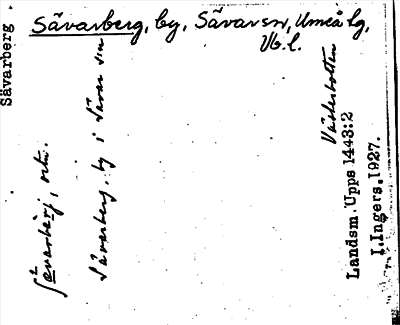 Sävarberg, by, Sävar sn, Umeå lg,
Vb. l.
Sävarberg
sävarbærj, ortn.
Sävarberg, by i Sävar sn
Västerbotten
Landsm. Upps 1443:2
I. Ingers. 1927.